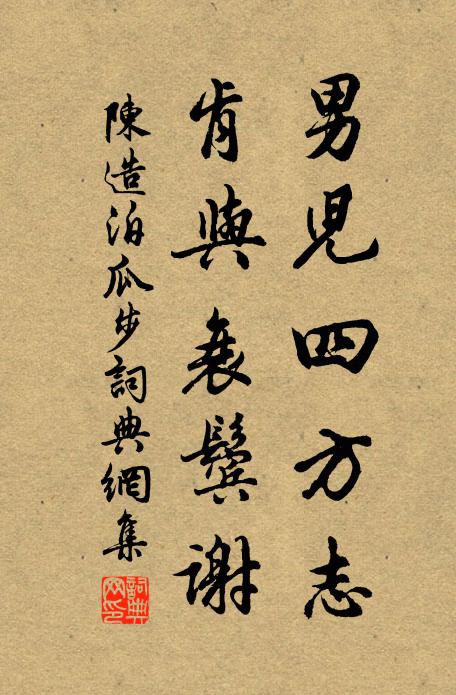 男児四方志
肯與衰鬓謝
陳造泊瓜步詞典網集
詞典网印